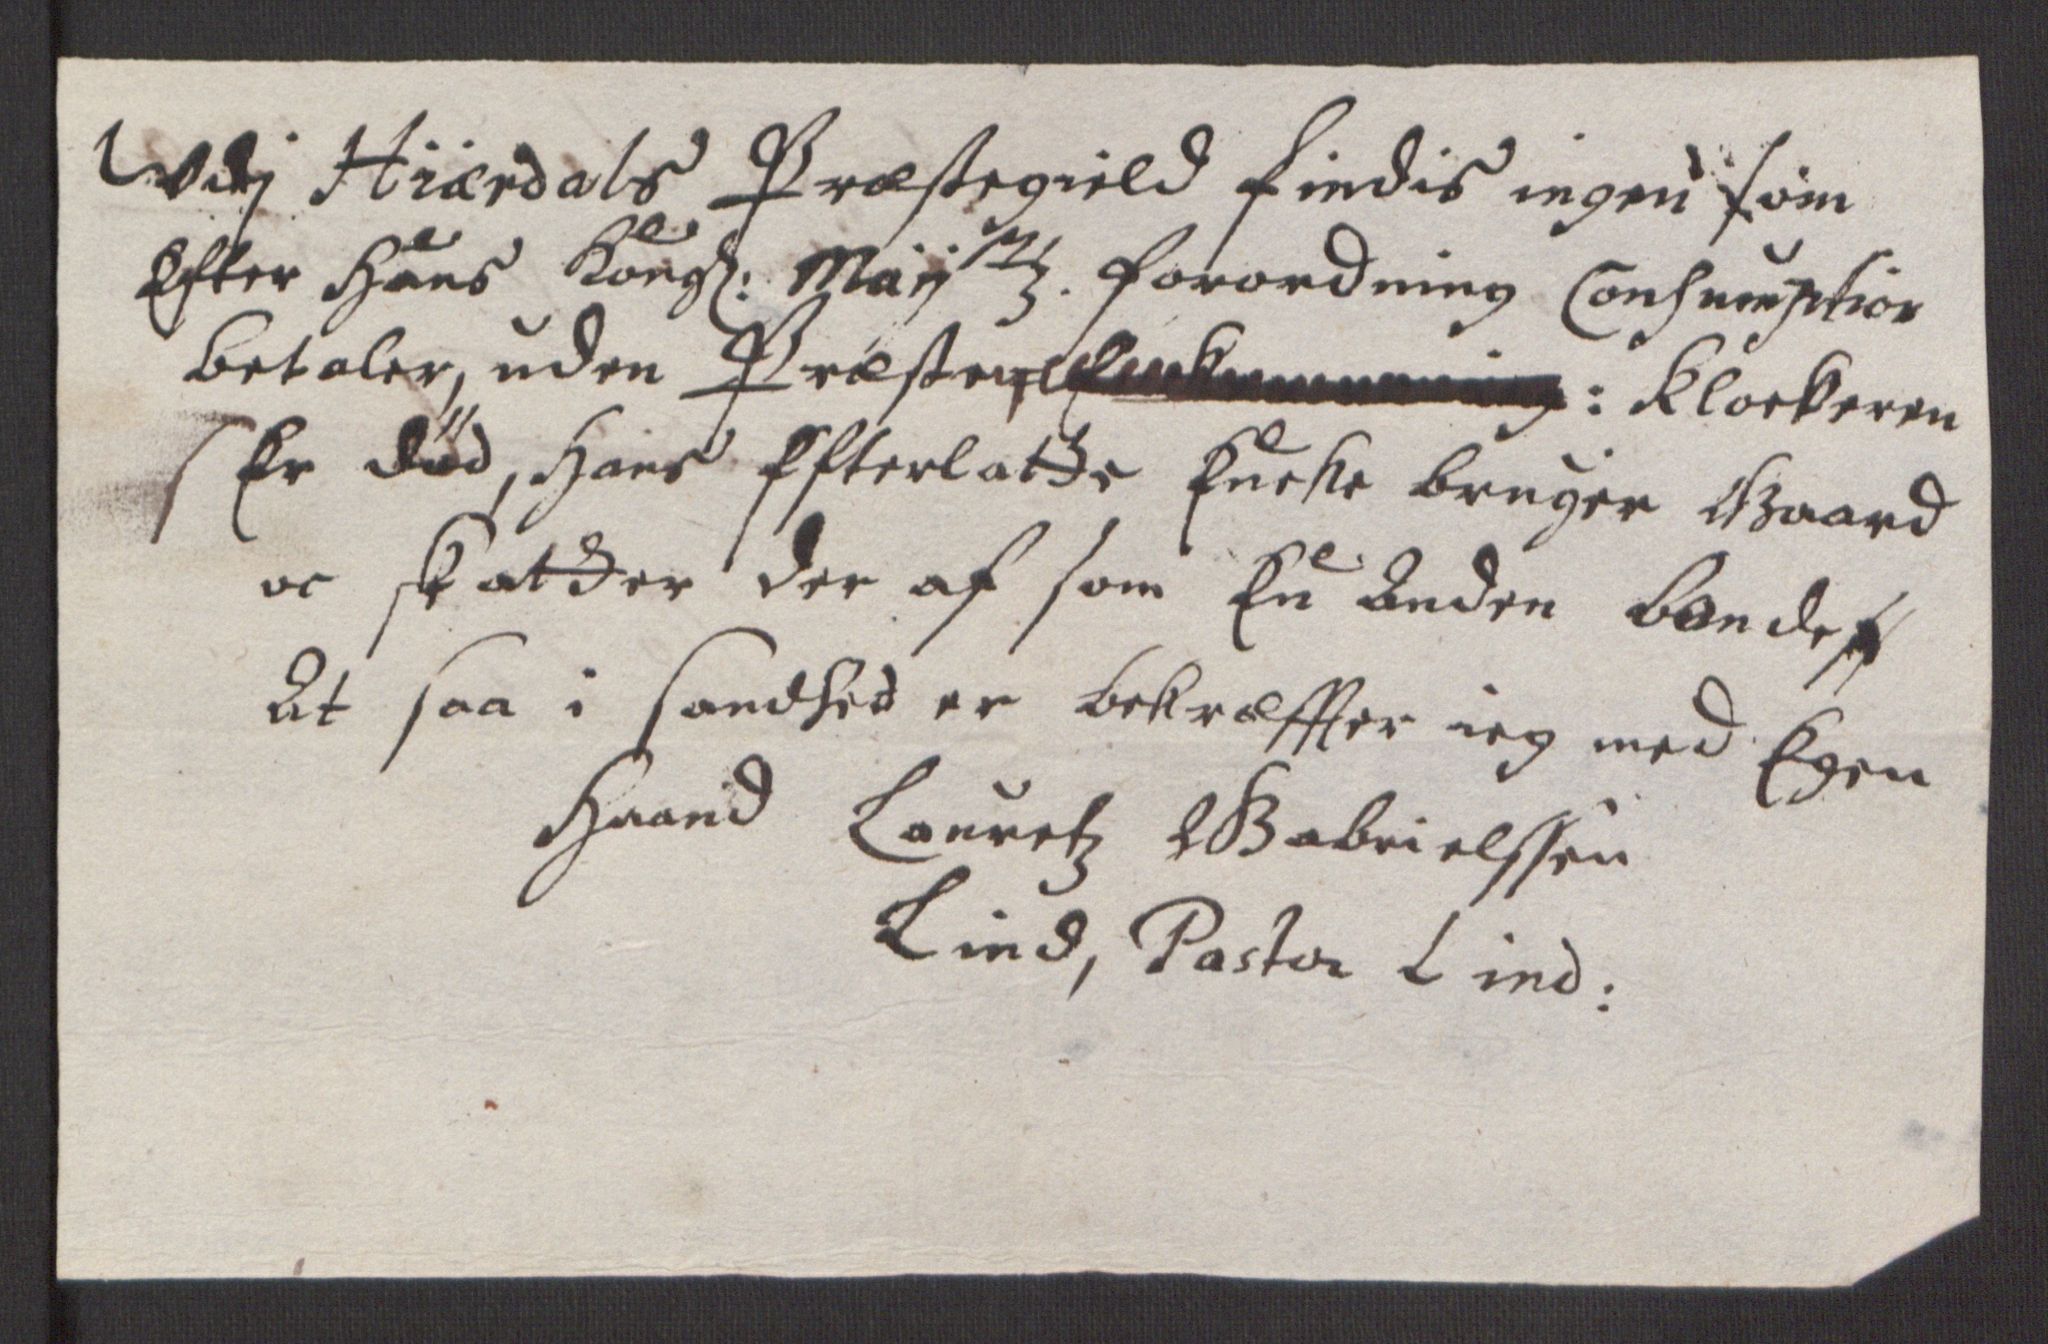 Udj Hiærdals Præstegield findis ingen som
Efter Hans Kongl: Maijtz. forordning Consumption
betaler, uden Præsten : Klockeren
Er död, Hans Efterlatte Encke bruger Gaard
oc skatter der af som En anden bonde
At saa i sandhed er bekræffter ieg med Egen
Haand Lauretz Gabrielssen
Lind, Pastor Lind: